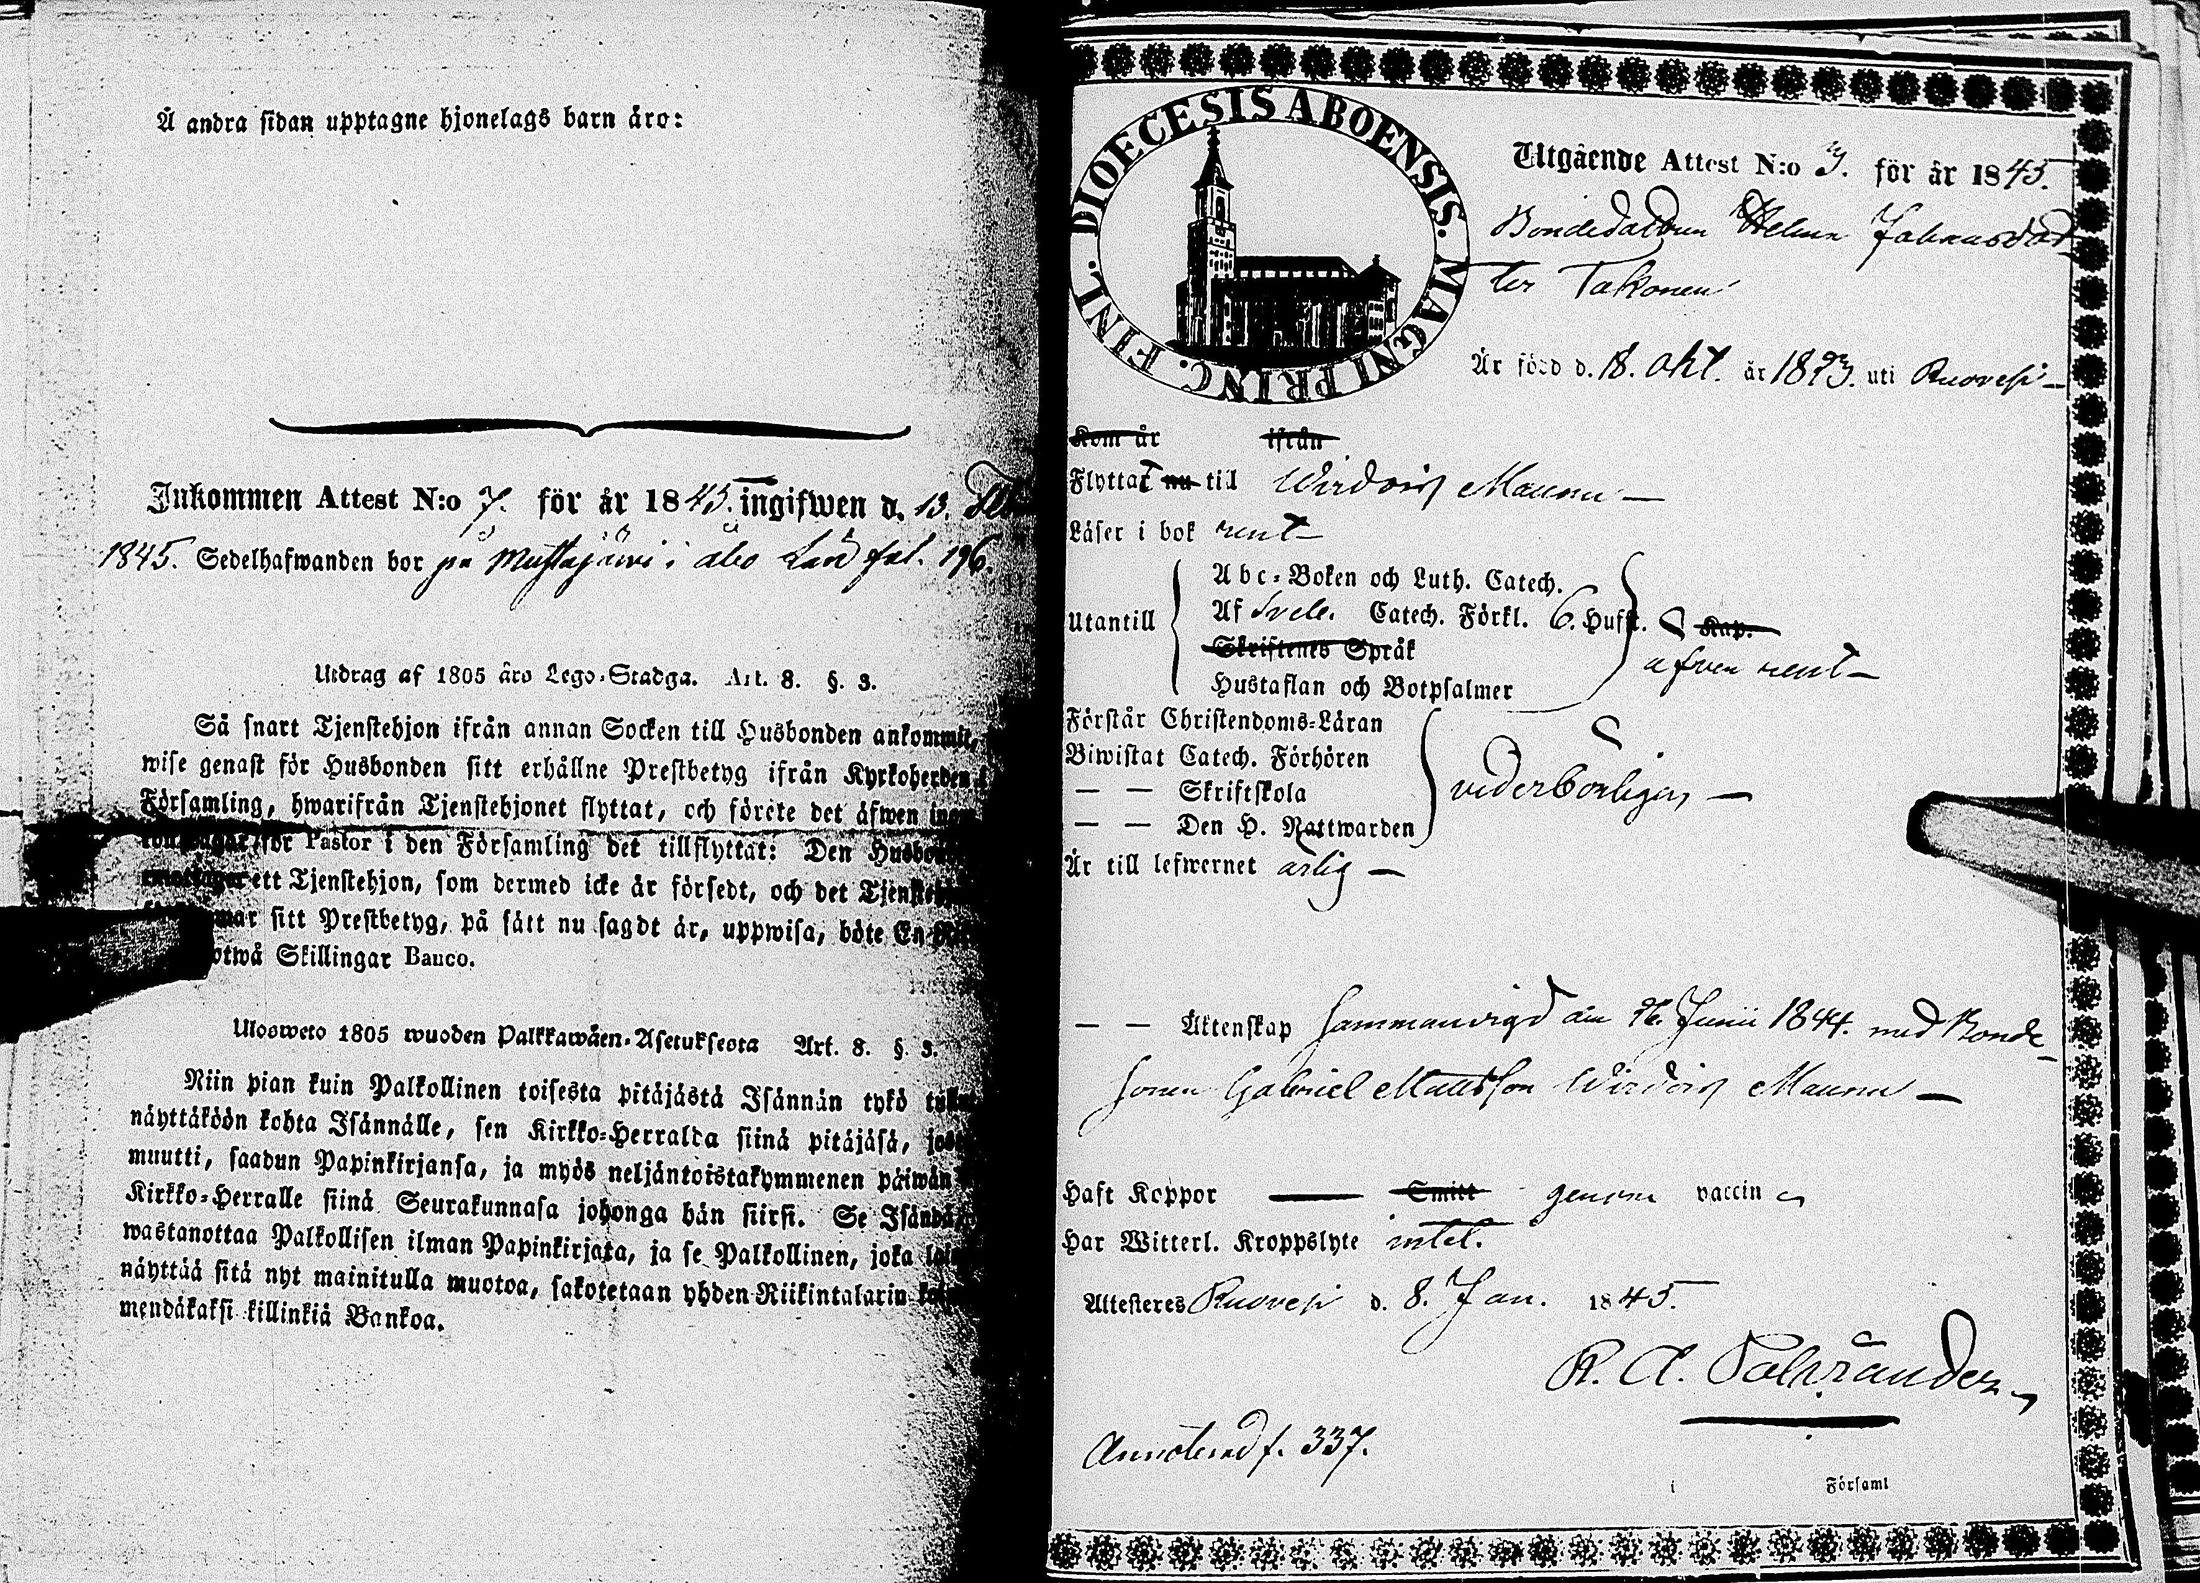 Å andra sidan upptagne hjonelags barn äro:
Inkommen Attest N:o 7. för år 1845. ingifwen d. 13.
1845. Sedelhafwanden bor på Mustajärwi i Åbo Län fol. 196.
Utdrag af 1805 års Lego-Stadga. Art. 8. §. 3.
Så snart Tjenstehjon ifrån annan Socken till Husbonden ankommit,
wise genast för Husbonden sitt erhållne Prestbetyg ifrån Kyrkoherden i
Församling, hwarifrån Tjenstehjonet flyttat, och förete det äfwen
för Pastor i den Församling det tillflyttat: Den
ett Tjenstehjon, som dermed icke är försedt, och det
sitt Prestbetyg, på sätt nu sagdt är, uppwisa, böte En
Skillingar Banco.
Ulosweto 1805 wuoden Palkkawäen-Asetuksesta Art. 8. §. 3.
Niin pian kuin Palkollinen toisesta pitäjästä Isännän tykö
näyttäköön kohta Isännälle, sen Kirkko-Herralda siinä pitäjäsä,
muutti, saadun Papinkirjansa, ja myös neljäntoistakymmenen päiwän
Kirkko-Herralle siinä Seurakunnasa johonga hän siirsi. Se
wastanottaa Palkollisen ilman Papinkirjata, ja se Palkollinen, joka
näyttää sitä nyt mainitulla muotoa, sakotetaan yhden Riikintalarin
mendäkaksi killinkiä Bankoa.
DIOECESIS ABOENSIS. MAGNI PRINC. FINL.
Utgående Attest N:o 3. för år 1845.
Bondedottren Helena Johansdot
ter Takonen
Är född d. 18. Okt. år 1823. uti Ruovesi
Kom år ifrån
Flyttat nu till Wirdois Maunu
Läser i bok rent
Abc-Boken och Luth. Catech.
Utantill Af Sveb. Catech. Förkl. 6. Hufst. Kap.
Skriftenes Språk
äfven rent
Hustaflan och Botpsalmer
Förstår Christendoms-Läran
Biwistat Catech. Förhören
— — Skriftskola vederbörligen
— — Den H. Nattwarden
Är till lefwernet ärlig
— — Äktenskap sammanvigd den 26. Junii 1844. med Bonde
sonen Gabriel Mattsson Wirdois Maunu
Haft Koppor Smitt genom vaccin
Har Witterl. Kroppslyte intet.
Attesteres Ruovesi d. 8. Jan. 1845.
Annoterad f. 337.
i Församl